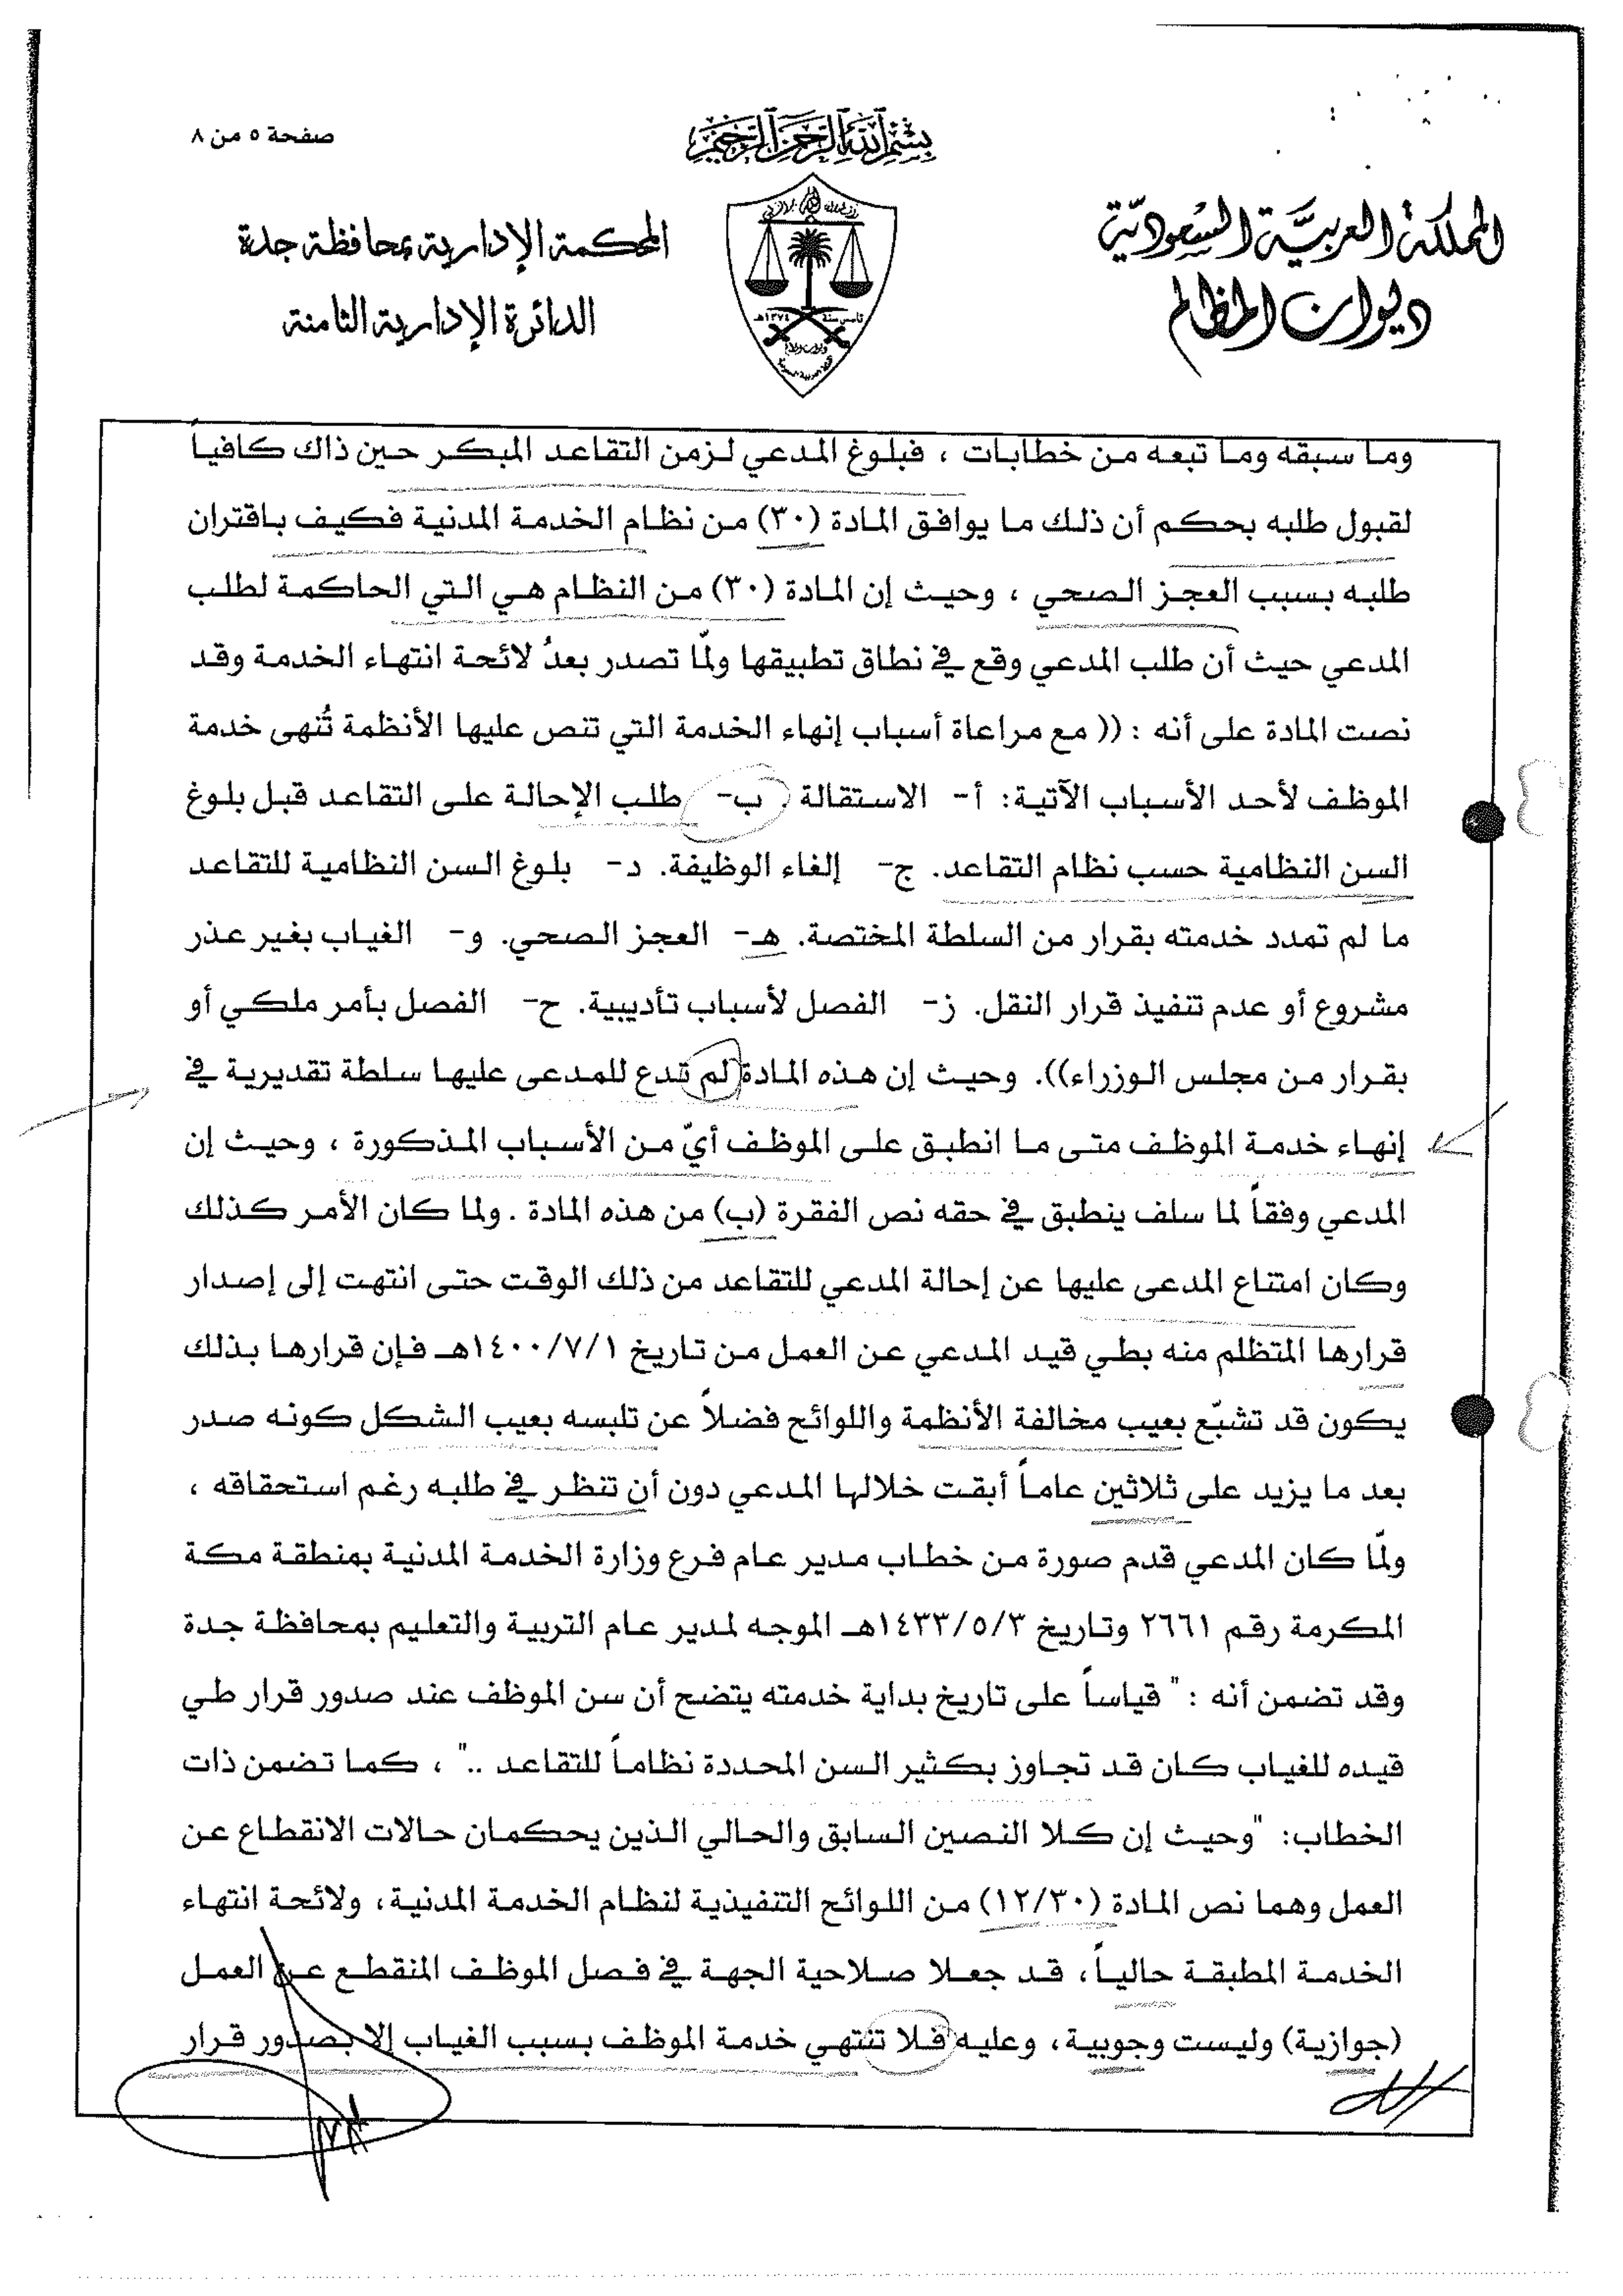 صفحة ٥ من ٨
بسم الله الرحمن الرحيم
المملكة العربية السعودية
ديوان المظالم
المحكمة الإدارية بمحافظة جدة
الدائرة الإدارية الثامنة
تأسس سنة ١٣٧٤هـ
وما سبقه وما تبعه من خطابات ، فبلوغ المدعي لزمن التقاعد المبكر حين ذاك كافياً
لقبول طلبه بحكم أن ذلك ما يوافق المادة (٣٠) من نظام الخدمة المدنية فكيف باقتران
طلبه بسبب العجز الصحي ، وحيث إن المادة (٣٠) من النظام هي التي الحاكمة لطلب
المدعي حيث أن طلب المدعي وقع في نطاق تطبيقها ولمّا تصدر بعدُ لائحة انتهاء الخدمة وقد
نصت المادة على أنه : (( مع مراعاة أسباب إنهاء الخدمة التي تنص عليها الأنظمة تُنهى خدمة
الموظف لأحد الأسباب الآتية: أ- الاستقالة . ب- طلب الإحالة على التقاعد قبل بلوغ
السن النظامية حسب نظام التقاعد. ج- إلغاء الوظيفة. د- بلوغ السن النظامية للتقاعد
ما لم تمدد خدمته بقرار من السلطة المختصة. هـ- العجز الصحي. و- الغياب بغير عذر
مشروع أو عدم تنفيذ قرار النقل. ز- الفصل لأسباب تأديبية. ح- الفصل بأمر ملكي أو
بقرار من مجلس الوزراء)). وحيث إن هذه المادة لم تدع للمدعى عليها سلطة تقديرية في
إنهاء خدمة الموظف متى ما انطبق على الموظف أيّ من الأسباب المذكورة ، وحيث إن
المدعي وفقاً لما سلف ينطبق في حقه نص الفقرة (ب) من هذه المادة . ولما كان الأمر كذلك
وكان امتناع المدعى عليها عن إحالة المدعي للتقاعد من ذلك الوقت حتى انتهت إلى إصدار
قرارها المتظلم منه بطي قيد المدعي عن العمل من تاريخ ١٤٠٠/٧/١هـ فإن قرارها بذلك
يكون قد تشبّع بعيب مخالفة الأنظمة واللوائح فضلاً عن تلبسه بعيب الشكل كونه صدر
بعد ما يزيد على ثلاثين عاماً أبقت خلالها المدعي دون أن تنظر في طلبه رغم استحقاقه ،
ولمّا كان المدعي قدم صورة من خطاب مدير عام فرع وزارة الخدمة المدنية بمنطقة مكة
المكرمة رقم ٢٦٦١ وتاريخ ١٤٣٣/٥/٣هـ الموجه لمدير عام التربية والتعليم بمحافظة جدة
وقد تضمن أنه : " قياساً على تاريخ بداية خدمته يتضح أن سن الموظف عند صدور قرار طي
قيده للغياب كان قد تجاوز بكثير السن المحددة نظاماً للتقاعد .." ، كما تضمن ذات
الخطاب: "وحيث إن كلا النصين السابق والحالي الذين يحكمان حالات الانقطاع عن
العمل وهما نص المادة (١٢/٣٠) من اللوائح التنفيذية لنظام الخدمة المدنية، ولائحة انتهاء
الخدمة المطبقة حالياً، قد جعلا صلاحية الجهة في فصل الموظف المنقطع عن العمل
(جوازية) وليست وجوبية، وعليه فلا تنتهي خدمة الموظف بسبب الغياب إلا بصدور قرار